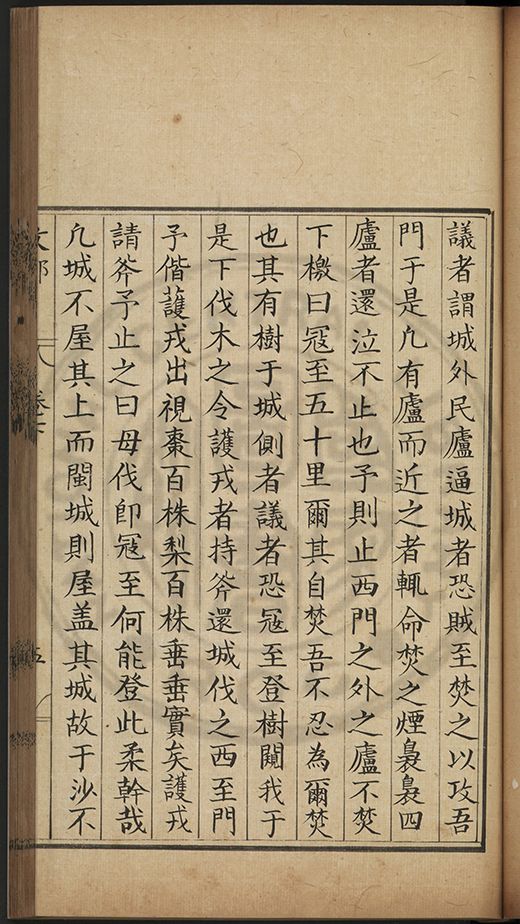 議者謂城外民廬逼城者恐賊至焚之以攻吾
門于是凢有廬而近之者輒命焚之煙裊裊四
廬者還泣不止也予則止西門之外之廬不焚
下檄曰冦至五十里爾其自焚吾不忍為爾焚
也其有樹于城側者議者恐冦至登樹闚我于
是下伐木之令護戎者持斧還城伐之西至門
予偕護戎出視棗百株梨百株垂垂實矣護戎
請斧予止之曰毋伐卽冦至何能登此柔幹哉
凢城不屋其上而閩城則屋盖其城故于沙不
卷
五